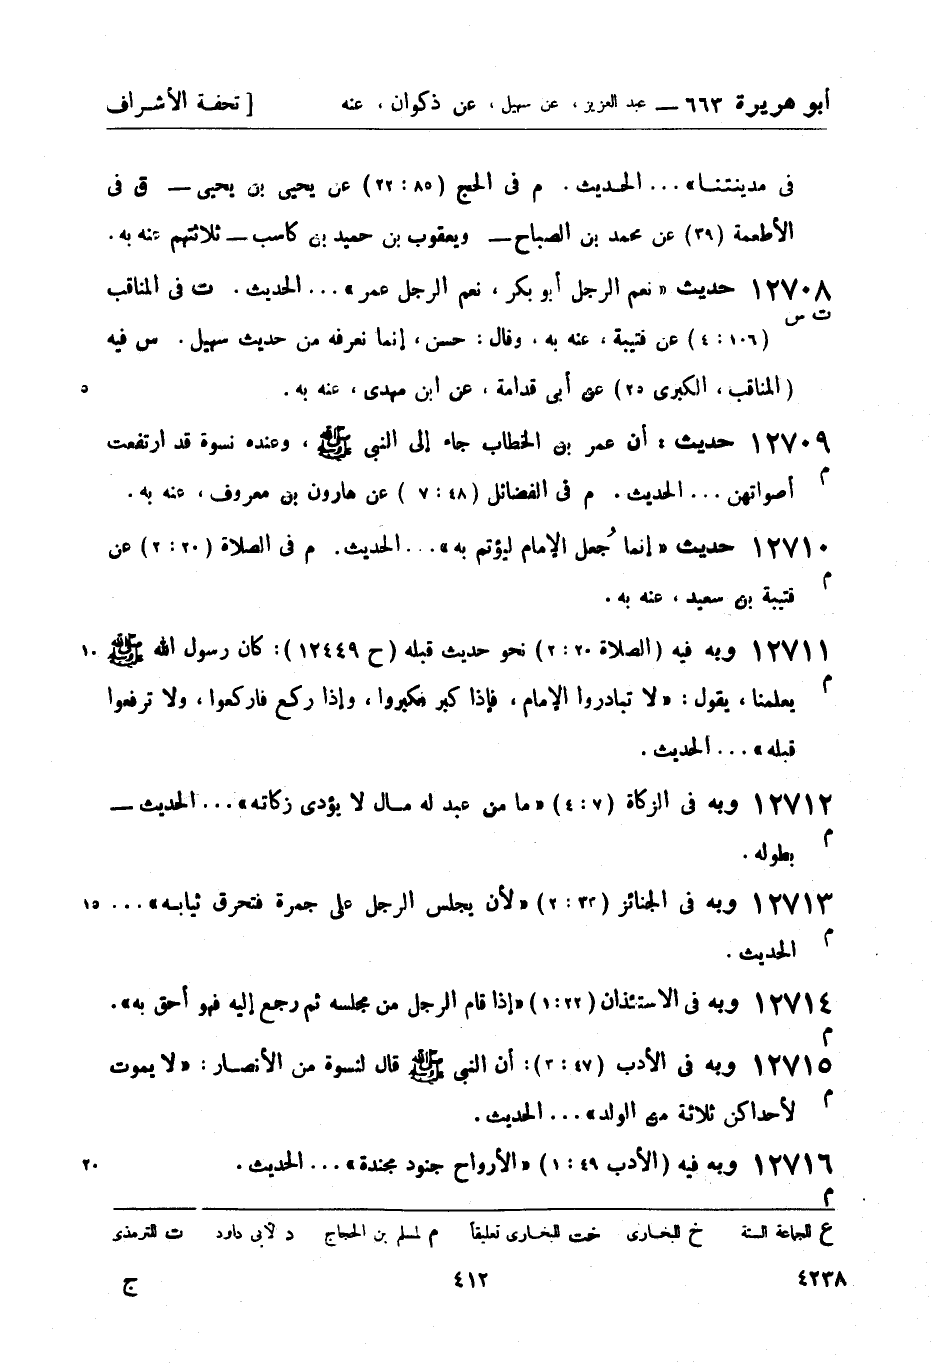 أبو هريرة ٦٦٣ — عبد العزيز ، عن سهيل ، عن ذكوان ، عنه [ تحفة الأشراف
فى مدينتنا» ... الحديث . م فى الحج (٨٥ : ٢٢) عن يحيى بن يحيى — ق فى
الأطعمة (٣٩) عن محمد بن الصباح — ويعقوب بن حميد بن كاسب — ثلاثتهم عنه به .
١٢٧٠٨ حديث «نعم الرجل أبو بكر ، نعم الرجل عمر» ... الحديث . ت فى المناقب
ت س
(١٠٦ : ٤) عن قتيبة ، عنه به ، وقال : حسن ، إنما نعرفه من حديث سهيل . س فيه
(المناقب ، الكبرى ٢٥) عن أبى قدامة ، عن ابن مهدى ، عنه به . ٥
١٢٧٠٩ حديث : أن عمر بن الخطاب جاء إلى النبي ﷺ ، وعنده نسوة قد ارتفعت
م
أصواتهن ... الحديث . م فى الفضائل (٤٨ : ٧ ) عن هارون بن معروف ، عنه به .
١٢٧١٠ حديث «إنما جُعل الإمام ليؤتم به» ... الحديث . م فى الصلاة (٢٠ : ٢) عن
م
قتيبة بن سعيد ، عنه به .
١٢٧١١ وبه فيه (الصلاة ٢٠ : ٢) نحو حديث قبله (ح ١٢٤٤٩) : كان رسول الله ﷺ ١٠
م
يعلمنا ، يقول : «لا تبادروا الإمام ، فإذا كبر فكبروا ، وإذا ركع فاركعوا ، ولا ترفعوا
قبله» ... الحديث .
١٢٧١٢ وبه فى الزكاة (٧ : ٤) «ما من عبد له مال لا يؤدى زكاته» ... الحديث —
م
بطوله .
١٢٧١٣ وبه فى الجنائز (٣٣ : ٢) «لأن يجلس الرجل على جمرة فتحرق ثيابه» ... ١٥
م
الحديث .
١٢٧١٤ وبه فى الاستئذان (٢٢ : ١) «إذا قام الرجل من مجلسه ثم رجع إليه فهو أحق به» .
م
١٢٧١٥ وبه فى الأدب (٤٧ : ٣) : أن النبى ﷺ قال لنسوة من الأنصار : «لا يموت
م
لأحداكن ثلاثة من الولد» ... الحديث .
١٢٧١٦ وبه فيه (الأدب ٤٩ : ١) «الأرواح جنود مجندة» ... الحديث . ٢٠
م
ع للجماعة الستة خ للبخارى خت للبخارى تعليقاً م لمسلم بن الحجاج د لأبى داود ت للترمذى
٤٢٣٨ ٤١٢ ج